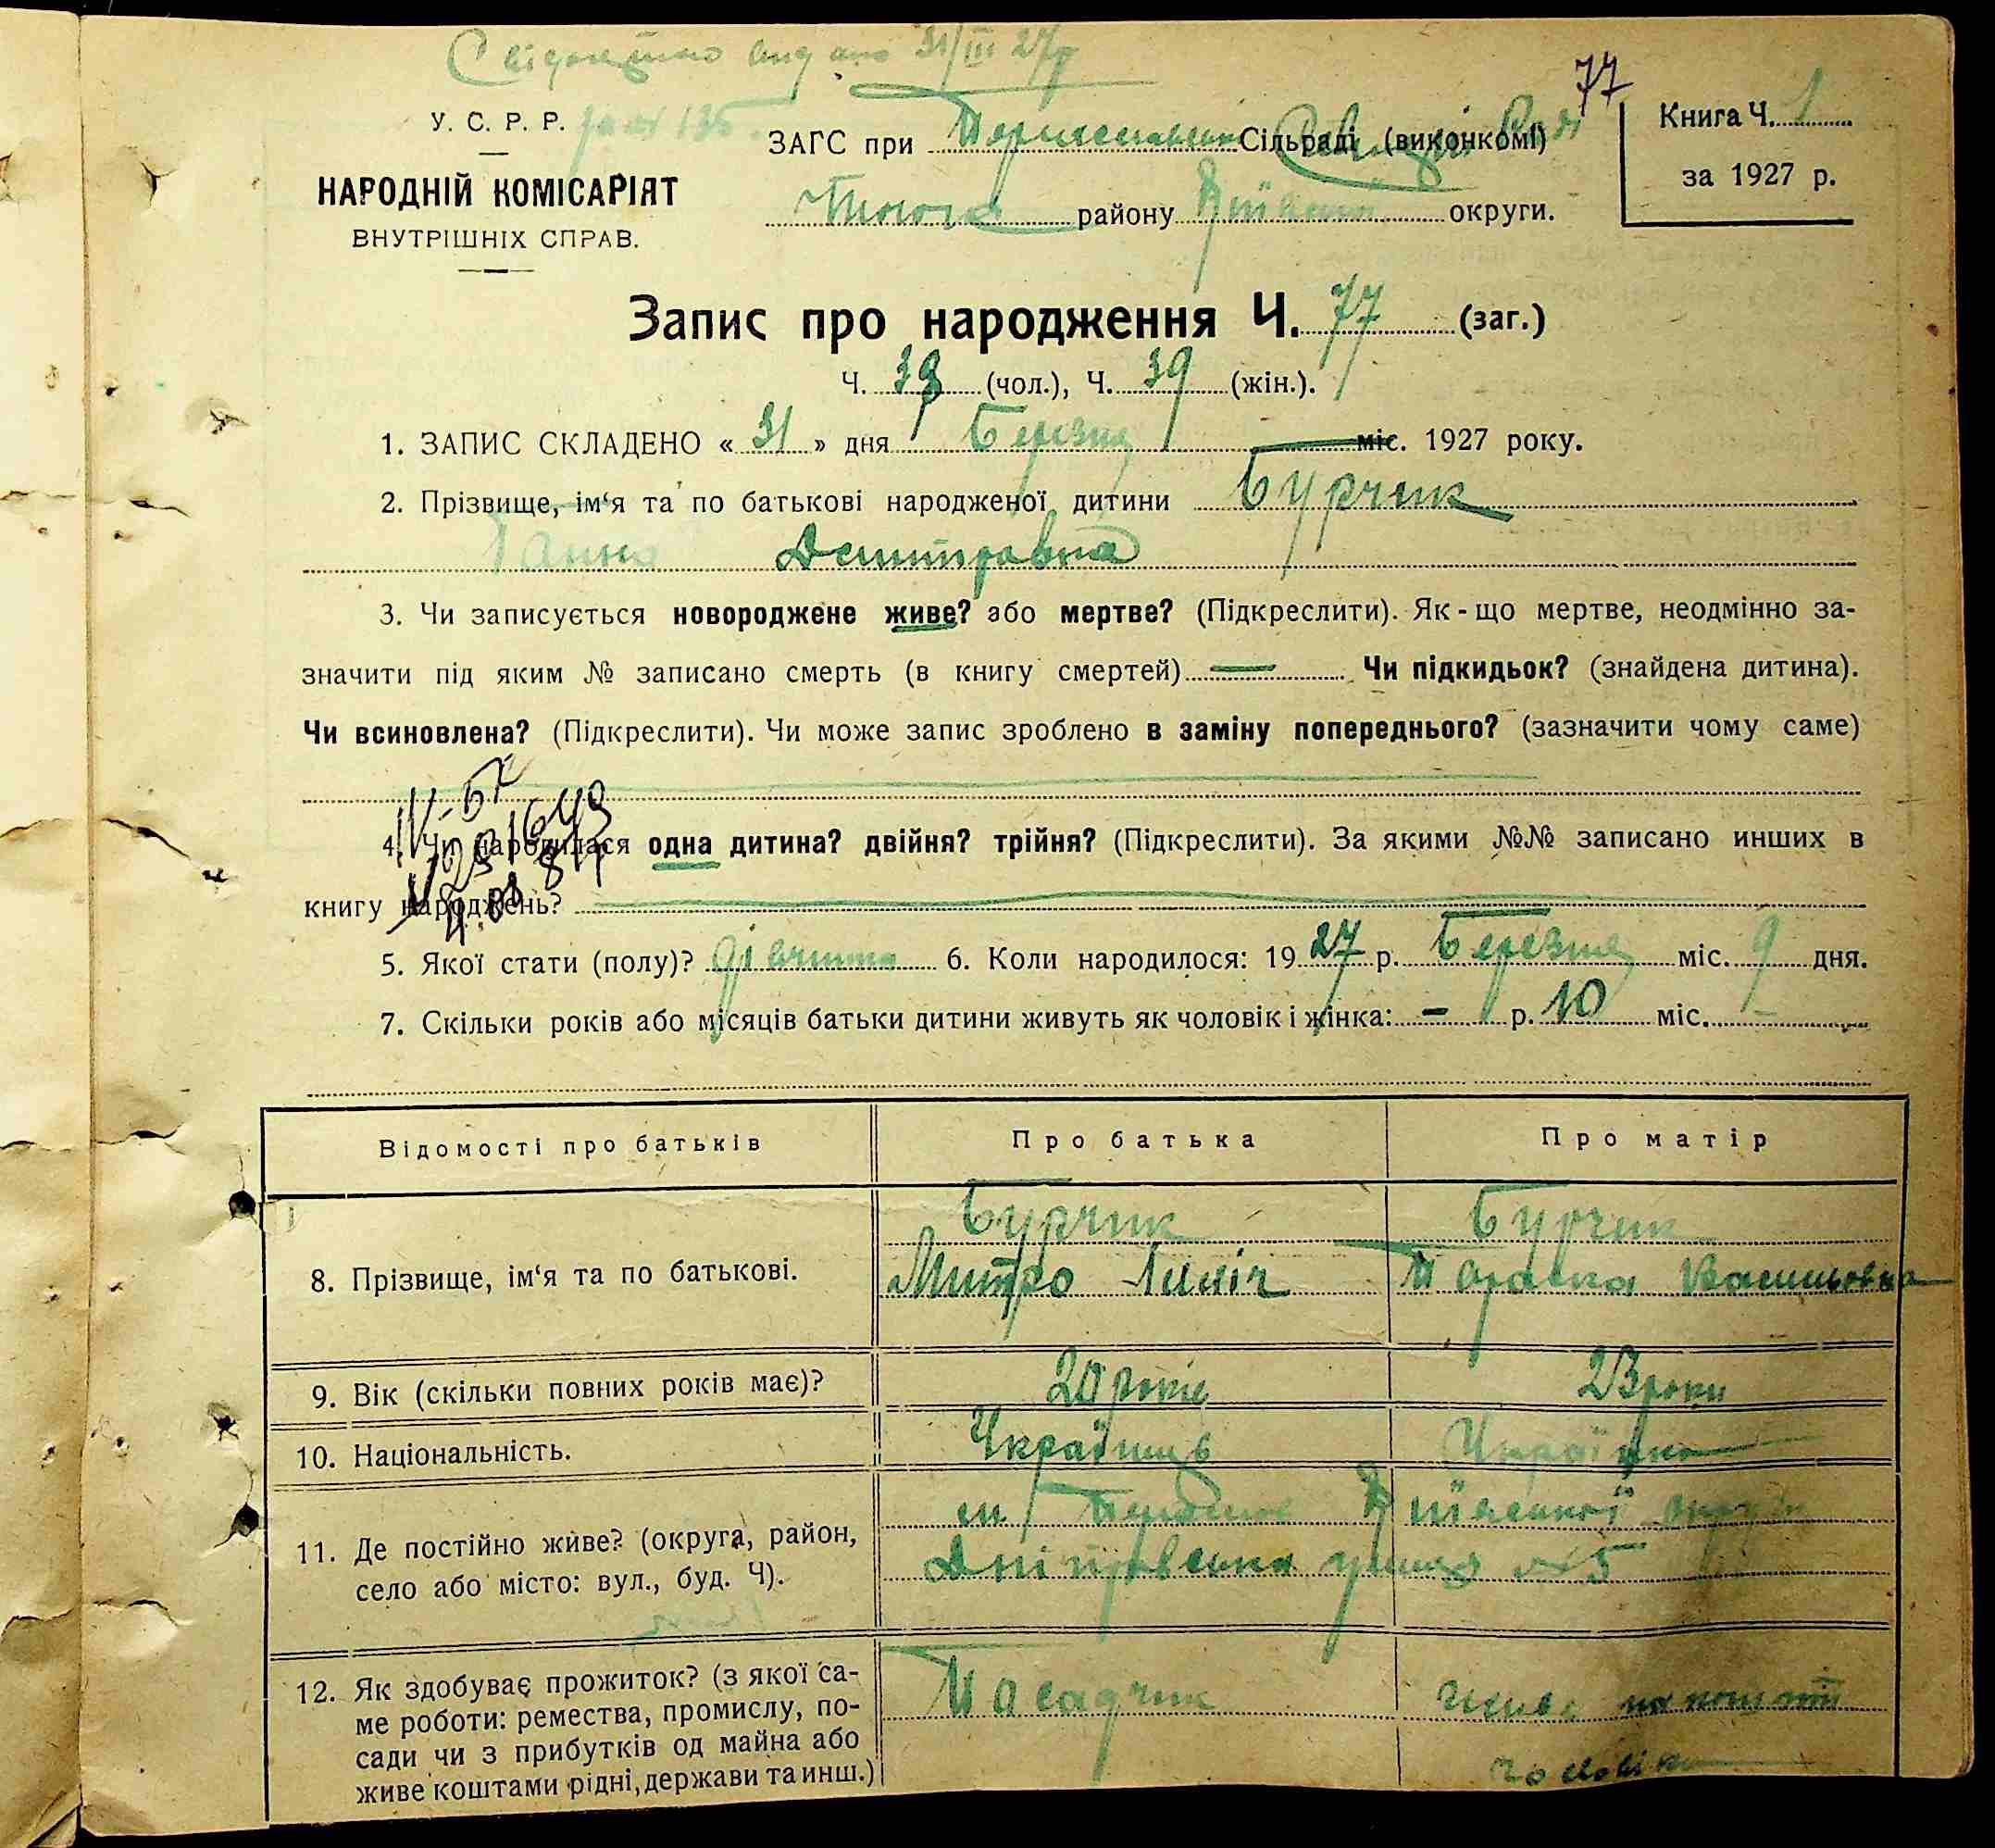 Свідоцтво видано 31/III 27р
У. С. Р. Р.
НАРОДНІЙ КОМІСАРІЯТ
ВНУТРІШНІХ СПРАВ.
77
ЗАГС при Сільраді (виконкомі)
району округи.
Книга Ч. 1
за 1927 р.
Запис про народження Ч. 77 (заг.)
Ч. 38 (чол.), Ч. 39 (жін.).
1. ЗАПИС СКЛАДЕНО « 31 » дня Березня міс. 1927 року.
2. Прізвище, ім‘я та по батькові народженої дитини Бурчик
Ганна Дмитровна
3. Чи записується новороджене живе? або мертве? (Підкреслити). Як-що мертве, неодмінно за-
значити під яким № записано смерть (в книгу смертей) — Чи підкидьок? (знайдена дитина).
Чи всиновлена? (Підкреслити). Чи може запис зроблено в заміну попереднього? (зазначити чому саме)
4. Чи народилася одна дитина? двійня? трійня? (Підкреслити). За якими №№ записано инших в
книгу народжень?
5. Якої стати (полу)? дівчина 6. Коли народилося: 1927 р. Березня міс. 9 дня.
7. Скільки років або місяців батьки дитини живуть як чоловік і жінка: – р. 10 міс.
Відомості про батьків Про батька Про матір
8. Прізвище, ім‘я та по батькові.
Бурчик Бурчик
Митро Параска Васильовна
9. Вік (скільки повних років має)? 20 років 23 роки
10. Національність. Українць Українка
11. Де постійно живе? (округа, район,
село або місто: вул., буд. Ч).
Дніпровська улиця № 5
12. Як здобуває прожиток? (з якої са-
ме роботи: ремества, промислу, по-
сади чи з прибутків од майна або
живе коштами рідні, держави та инш.)
Посадчик Живе на кошти
чоловіка